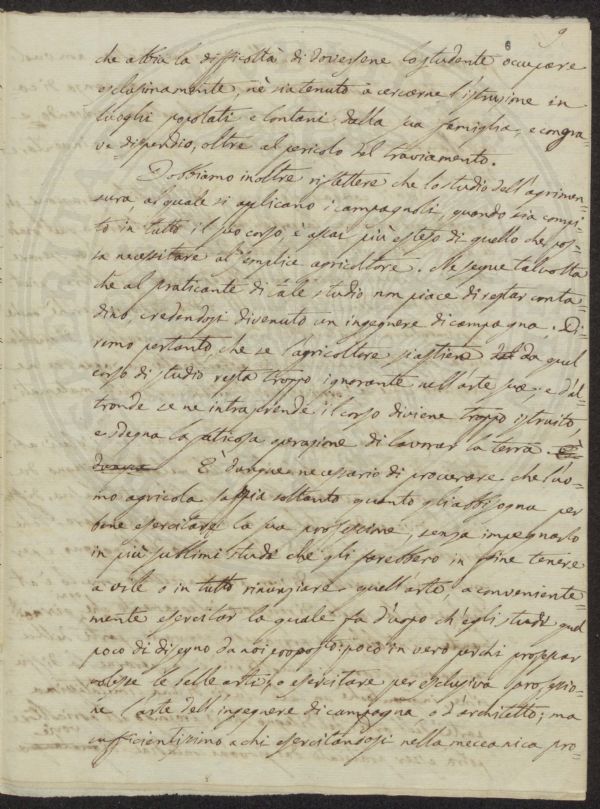 6
9
che abbia la difficoltà di dovessene lo studente occupare
esclusivamente, nè sia tenuto a cercarne l'istruzione in
luoghi popolati e lontani dalla sua famiglia, e con gra-
ve dispendio, oltre al pericolo del traviamento.
Dobbiamo inoltre riflettere che lo studio dell'agrimen-
sura, al quale si applicano i campagnoli, quando sia compi-
to in tutto il suo corso è assai più esteso di quello che pos-
sa necessitare al semplice agricoltore. Ne segue talvolta
che al praticante di tale studio non piace di restar conta-
dino, credendosi divenuto un ingegnere di campagna. Di-
remo pertanto che se l'agricoltore si astiene da quel
corso di studio resta troppo ignorante nell'arte sua; e d'al-
tronde se ne intraprende il corso diviene troppo istruito
e sdegna la faticosa operazione di lavorar la terra.
È dunque necessario di procurare che l'uo-
mo agricola sappia soltanto quanto gli abbisogna per
bene esercitare la sua professione, senza impegnarlo
in più sublimi studi che gli farebbero in fine tenere
a vile o in tutto rinunziare quell'arte, a conveniente-
mente esercitar la quale fa d'uopo ch'egli studi quel
poco di disegno da noi proposto: poco in vero per chi professar
volesse le belle arti, o esercitare per esclusiva professio-
ne l'arte dell'ingegnere di campagna o d'architetto; ma
sufficientissimo a chi esercitandosi nella meccanica pro-